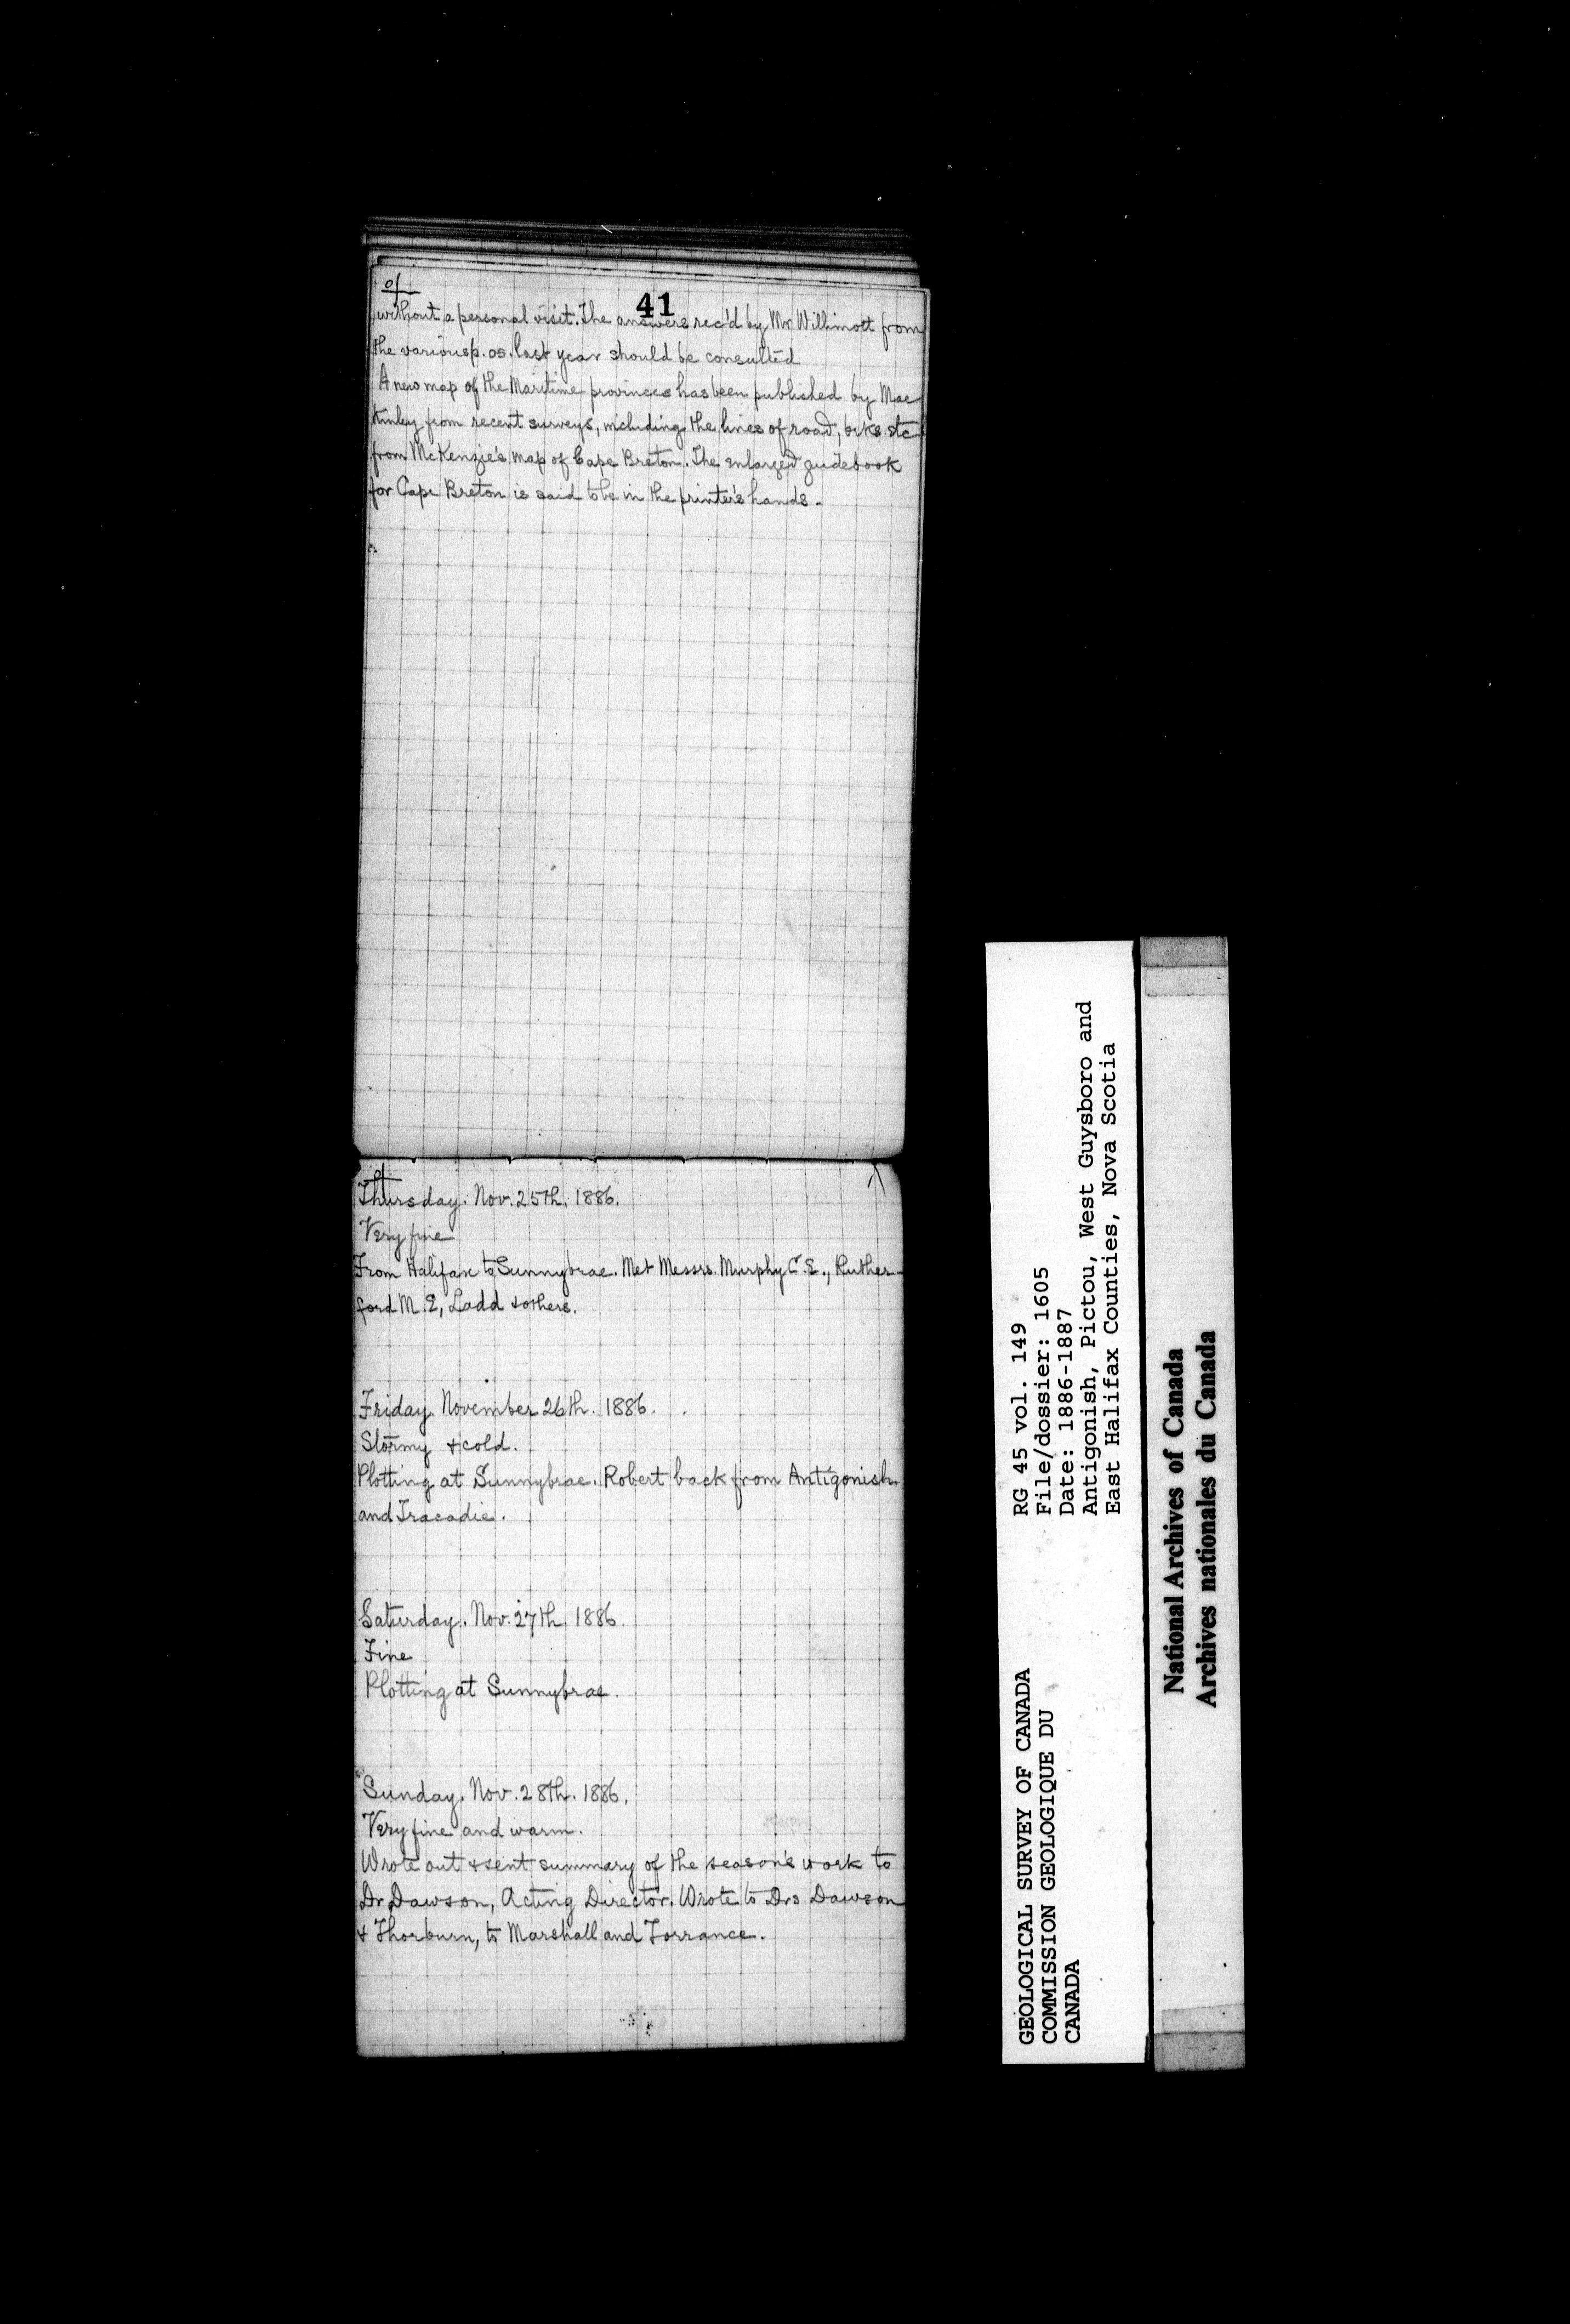 of
41
without a personal visit. The answers rec'd by Mr Willimott from
the various p. os. last year should be consulted
A new map of the Maritime provinces has been published by Mac
Kinley from recent surveys, including the lines of road, bks. etc
from McKenzie's map of Cape Breton. The enlarged guidebook
for Cape Breton is said to be in the printer's hands.
of
Thursday. Nov. 25th, 1886.
Very fine
From Halifax to Sunnybrae. Met Messrs. Murphy C.E., Ruther-
ford M.E, Ladd & others.
Friday. November 26th. 1886.
Stormy & cold.
Plotting at Sunnybrae. Robert back from Antigonish
and Tracadie.
Saturday. Nov. 27th, 1886.
Fine
Plotting at Sunnybrae.
Sunday. Nov. 28th. 1886.
Very fine and warm.
Wrote out & sent summary of the season's work to
Dr Dawson, Acting Director. Wrote to Drs Dawson
& Thorburn, to Marshall and Torrance.
GEOLOGICAL SURVEY OF CANADA
COMMISSION GEOLOGIQUE DU
CANADA
RG 45 vol. 149
File/dossier: 1605
Date: 1886-1887
Antigonish, Pictou, West Guysboro and
East Halifax Counties, Nova Scotia
National Archives of Canada
Archives nationales du Canada